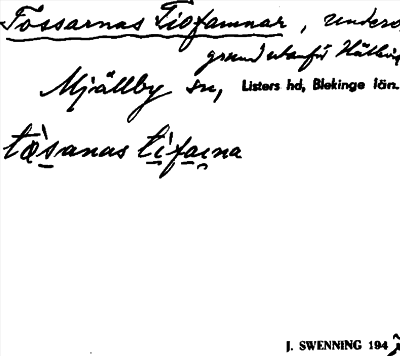 Tossarnas Tiofamnar, undervs
grund utanför Hälleviks
Mjällby sn, Listers hd, Blekinge län.
tòsanas tìfaɪna
J. SWENNING 194